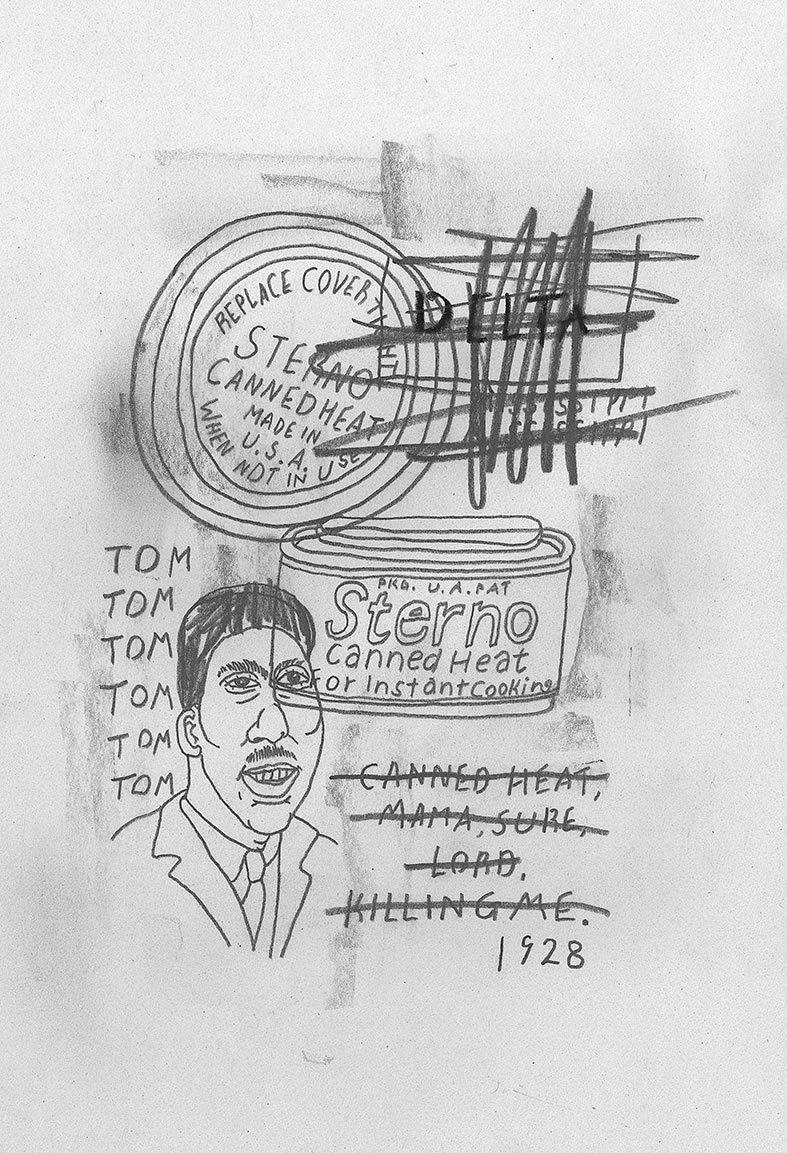 REPLACE COVER TIGHT
STERNO
CANNED HEAT
MADE IN
U.S.A.
WHEN NOT IN USE
DELTA
PKG. U.A.PAT
Sterno
Canned Heat
For Instant Cooking
TOM
TOM
TOM
TOM
TOM
TOM
CANNED HEAT,
MAMA, SURE,
LORD,
KILLING ME.
1928